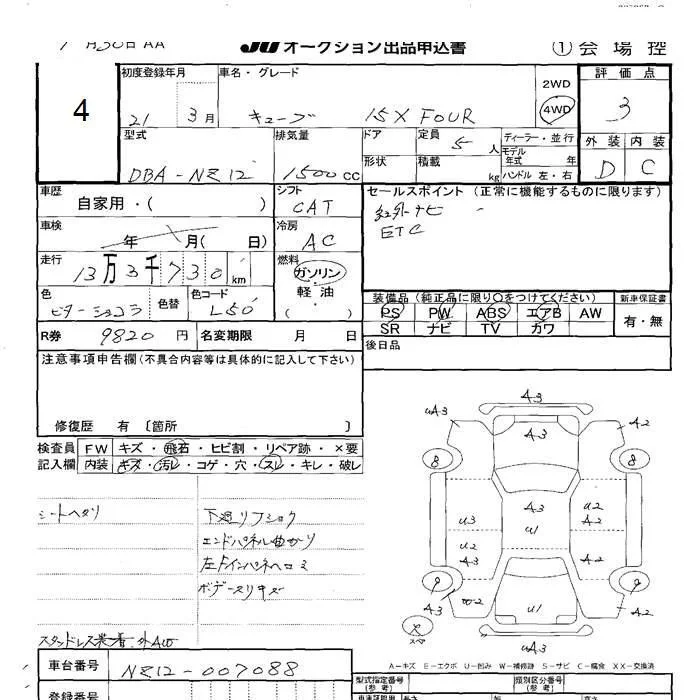 月30日 AA JU オークション出品申込書 ① 会場控
4
初度登録年月 車名・グレード 2WD 評価点
21 3月 キューブ 15X FOUR 4WD 3
型式 排気量 ドア 定員 ディーラー・並行 外装 内装
DBA-NZ12 1500cc 5人 モデル年式 年 D C
形状 積載 kg ハンドル 左・右
車歴 シフト セールスポイント (正常に機能するものに限ります)
自家用・( ) CAT 社外ナビ
車検 冷房 ETC
年 月( 日) AC
走行 燃料
13万3千730km ガソリン・軽油・( )
色 色替 色コード 装備品 (純正品に限り○をつけてください) 新車保証書
ビターショコラ L50 PS PW ABS エアB AW 有・無
R券 9820円 名変期限 月 日 SR ナビ TV カワ
後日品
注意事項申告欄(不具合内容等は具体的に記入して下さい)
修復歴 有 〔箇所 〕
検査員 FW キズ・飛石・ヒビ割・リペア跡・×要
記入欄 内装 キズ・汚レ・コゲ・穴・スレ・キレ・破レ
シートヘタリ 下廻リフショク
エンドパネル曲ガリ
左Fインパネヘコミ
ボデースリキズ
スタッドレス装着・外AW
A3
UA3 A3 A2
8 8
A3 U2
U3 U1 A2
U2 A2
9 9
A3 W2 U1
スペア UA3
A-キズ E-エクボ U-凹み W-補修跡 S-サビ C-腐食 XX-交換済
車台番号 NZ12-007088
型式指定番号(参考) 類別区分番号(参考)
登録番号